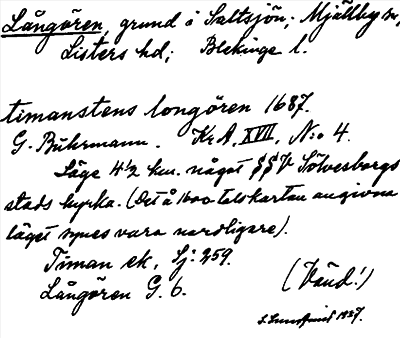 Långören, grund å Saltsjön; Mjällby sn,
Listers hd; Blekinge l.
timanstens longören 1687.
G. Buhrmann. Kr A, XVII, N:o 4.
Läge 4½ km. något SSV Sölvesborgs
stads kyrka. (Det å 1600 talskartan angivna
läget synes vara nordligare).
Timan ek, Sj: 259.
Långören G. 6.
(Vänd!)
1927.